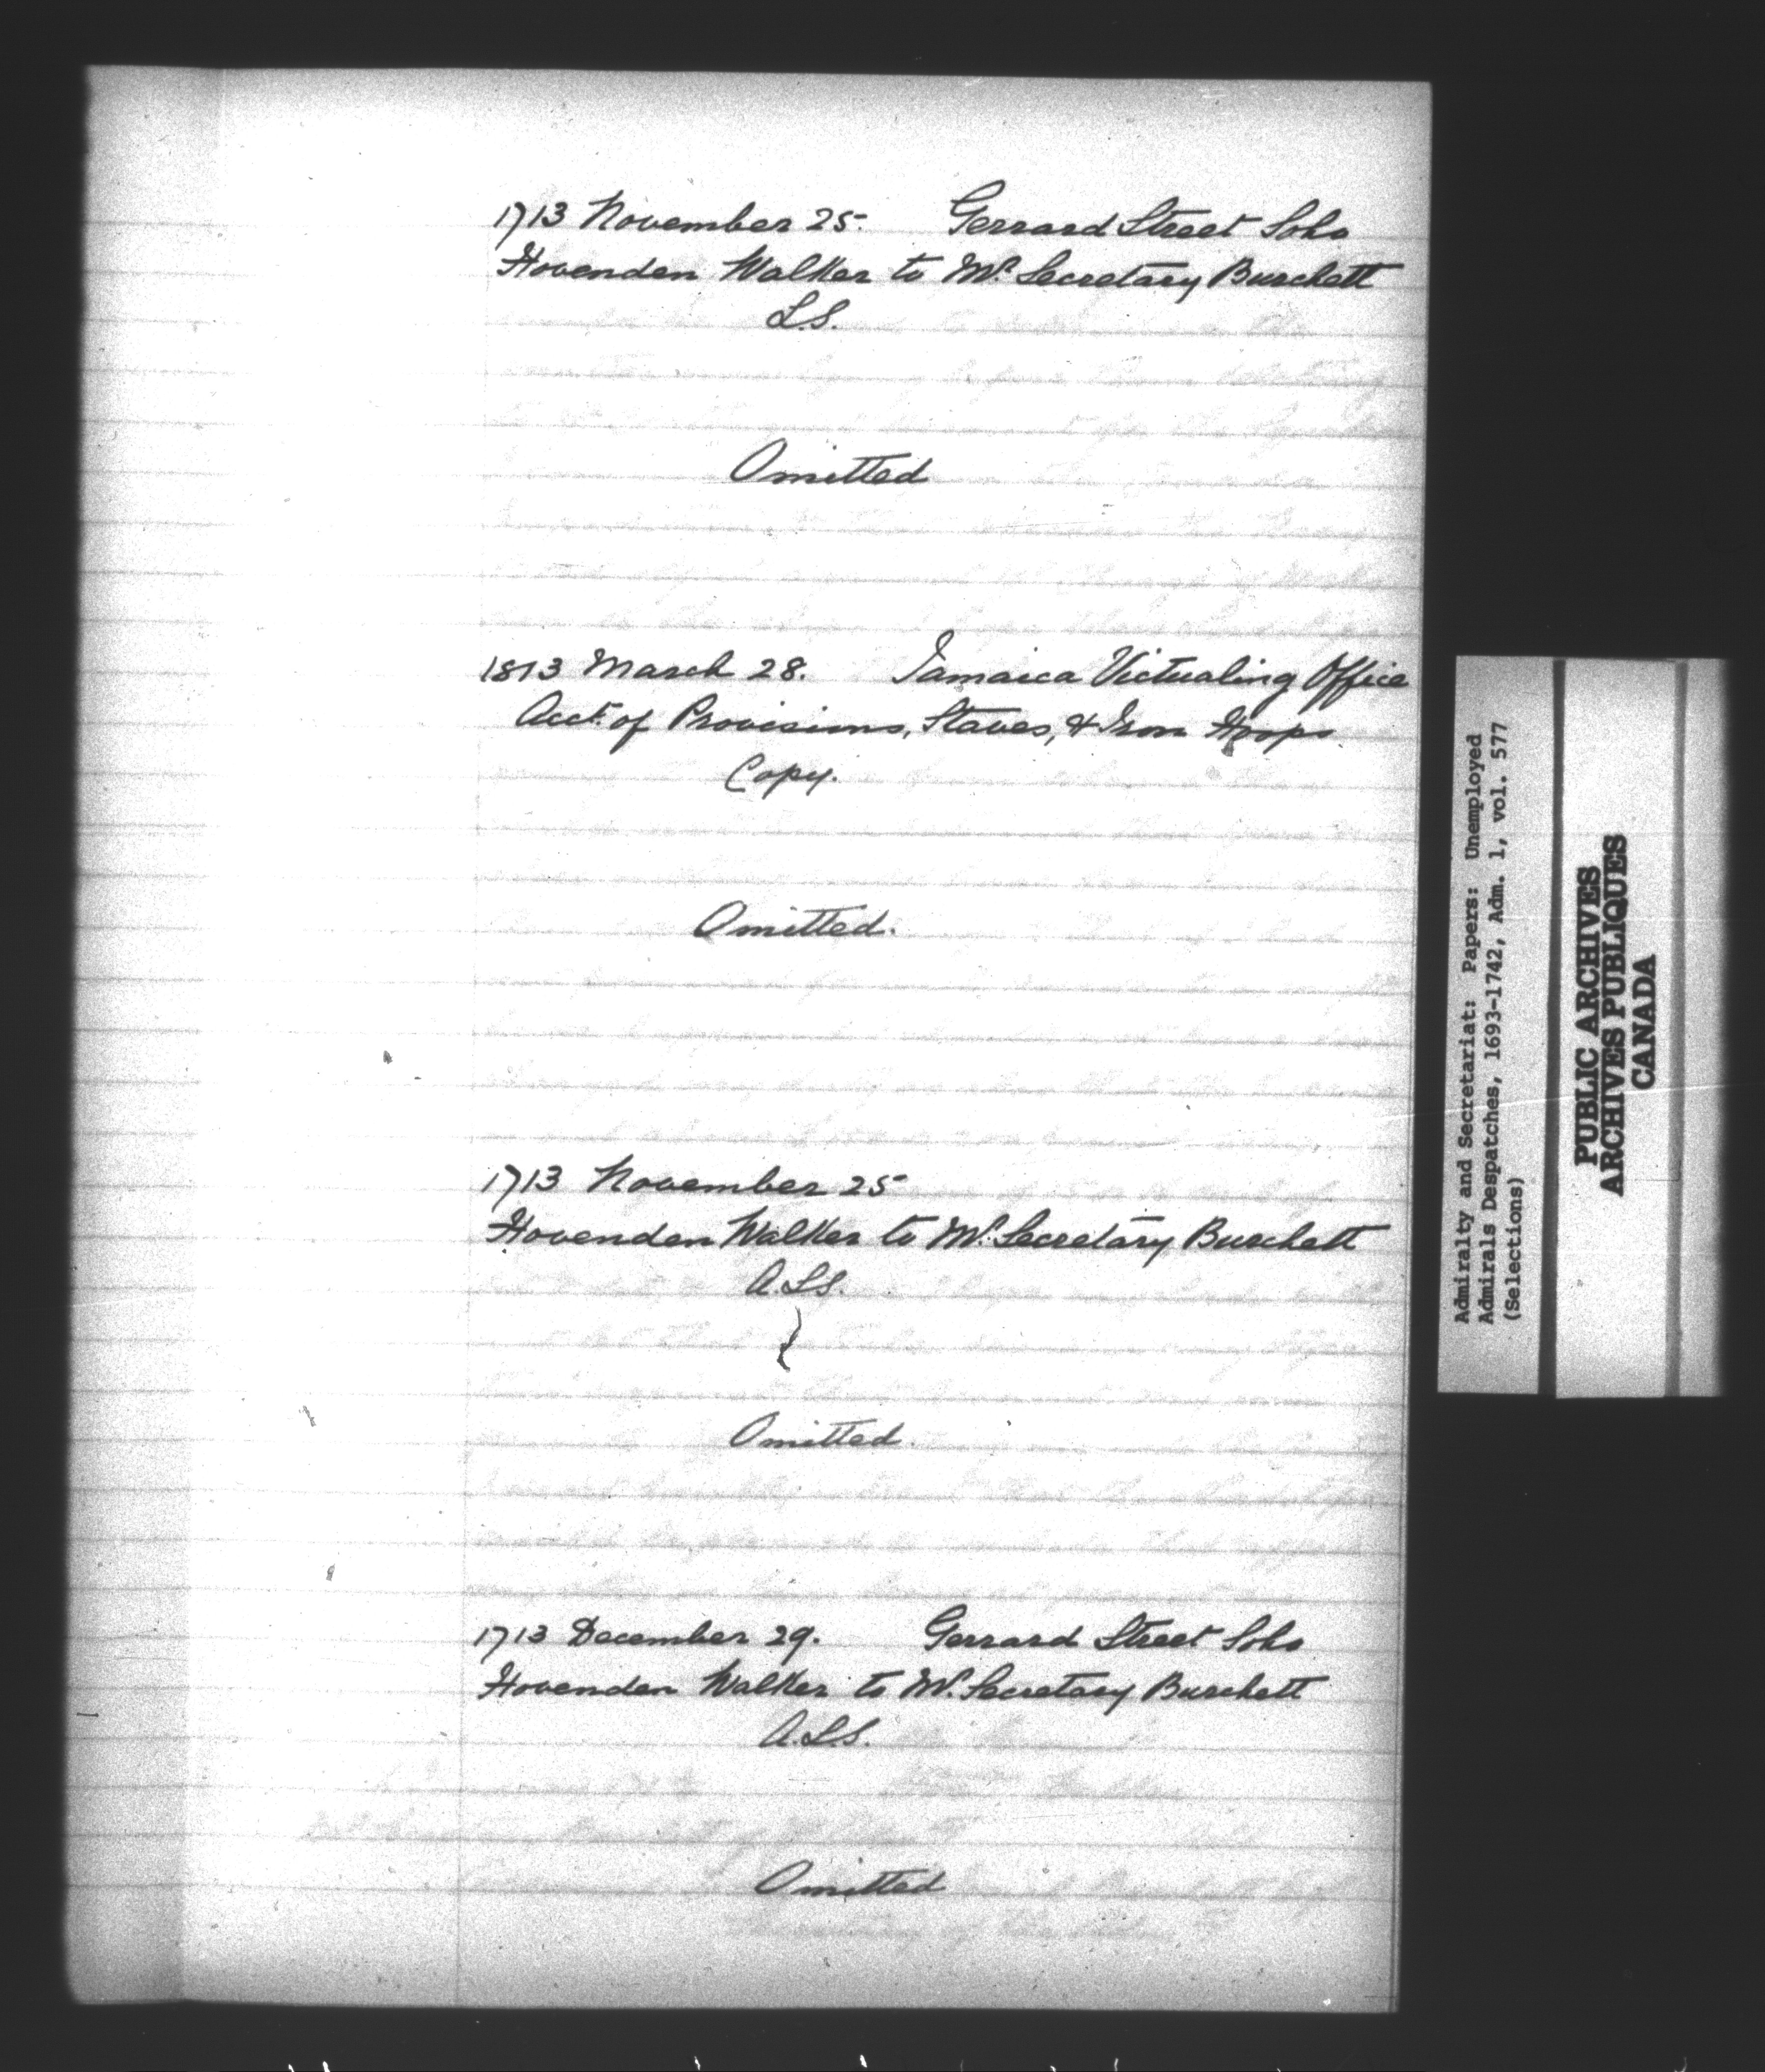 1713 November 25. Gerrard Street Soho
Hovenden Walker to Mr. Secretary Burchett
L.S.
Omitted
1813 March 28. Jamaica Victualing Office
Acct. of Provisions, Staves, & Iron Hoops
Copy.
Omitted.
1713 November 25
Hovenden Walker to Mr. Secretary Burchett
A.L.S.
Omitted.
1713 December 29. Gerrard Street Soho
Hovenden Walker to Mr. Secretary Burchett
A.L.S.
Omitted
Admiralty and Secretariat: Papers: Unemployed
Admirals Despatches, 1693-1742, Adm. 1, vol. 577
(Selections)
PUBLIC ARCHIVES
ARCHIVES PUBLIQUES
CANADA